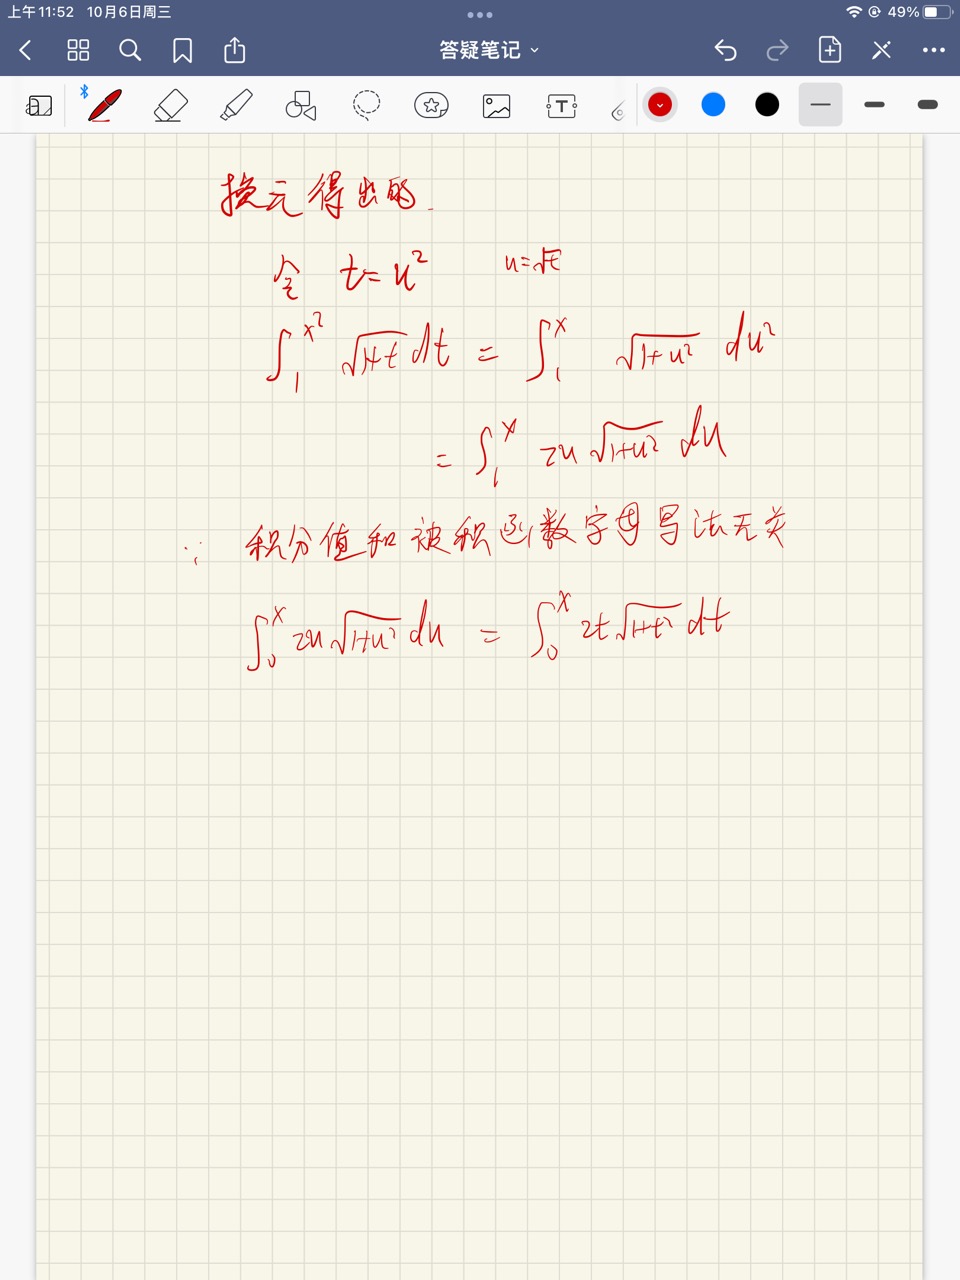 上午11:52 10月6日周三 49%
答疑笔记
换元得出的.
令 t=u² u=√t
∫₁^x² √1+t dt = ∫₁^x √1+u² du²
= ∫₁^x 2u √1+u² du
∵ 积分值和被积函数字母写法无关
∫₀^x 2u √1+u² du = ∫₀^x 2t √1+t² dt